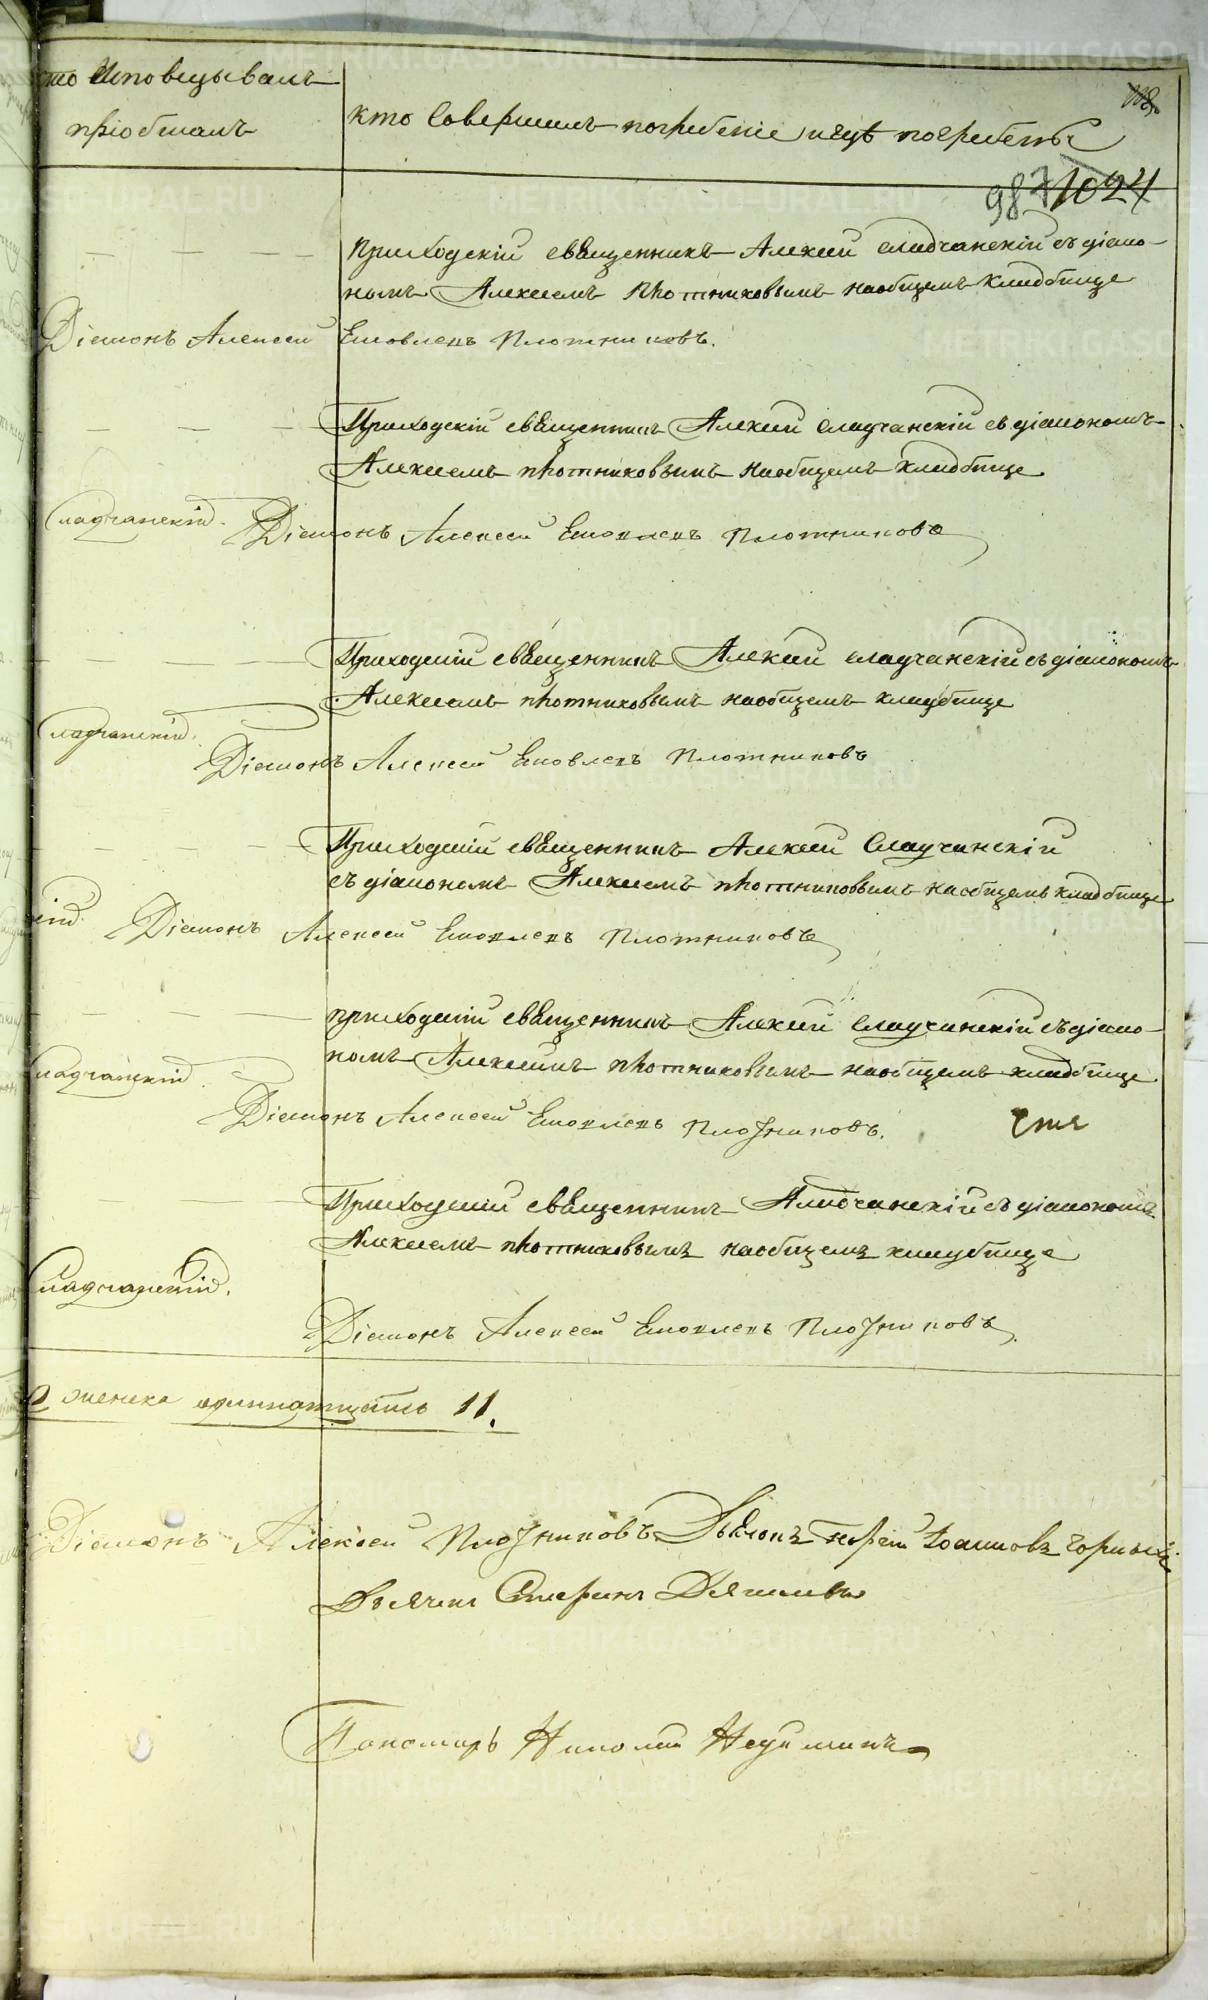 кто Исповедывалъ
приобщалъ
кто Совершилъ погребенiе и где погребены
987 1024
Приходскiй священникъ Алексий Сладчанскiй съ дiако-
номъ Алексеемъ Плотниковымъ на общемъ кладбище
Дiаконъ Алексей Яковлевъ Плотниковъ.
Приходскiй священникъ Алексий Сладчанскiй съ дiакономъ
Алексеемъ Плотниковымъ на общемъ кладбище
Сладчанскiй. Дiаконъ Алексей Яковлевъ Плотниковъ
Приходскiй священникъ Алексий Сладчанскiй съ дiакономъ
Алексеемъ Плотниковымъ на общемъ кладбище
Сладчанскiй. Дiаконъ Алексей Яковлевъ Плотниковъ
Приходскiй священникъ Алексий Сладчанскiй
съ дiакономъ Алексеемъ Плотниковымъ на общемъ кладбище
кiй. Дiаконъ Алексей Яковлевъ Плотниковъ
приходскiй священникъ Алексий Сладчанскiй съ дiако-
номъ Алексеимъ Плотниковымъ на общемъ кладбище
Сладчанскiй. Дiаконъ Алексей Яковлевъ Плотниковъ.
Приходскiй священникъ Сладчанскiй съ дiакономъ
Алексеемъ Плотниковымъ на общемъ кладбище
Сладчанскiй.
Дiаконъ Алексей Яковлевъ Плотниковъ.
женска одиннатцать 11.
Дiаконъ Алексей Плотниковъ Дьяконъ Iоанновъ Чорный
Дьячекъ Стефанъ
Пономарь Николай
METRIKI.GASO-URAL.RU